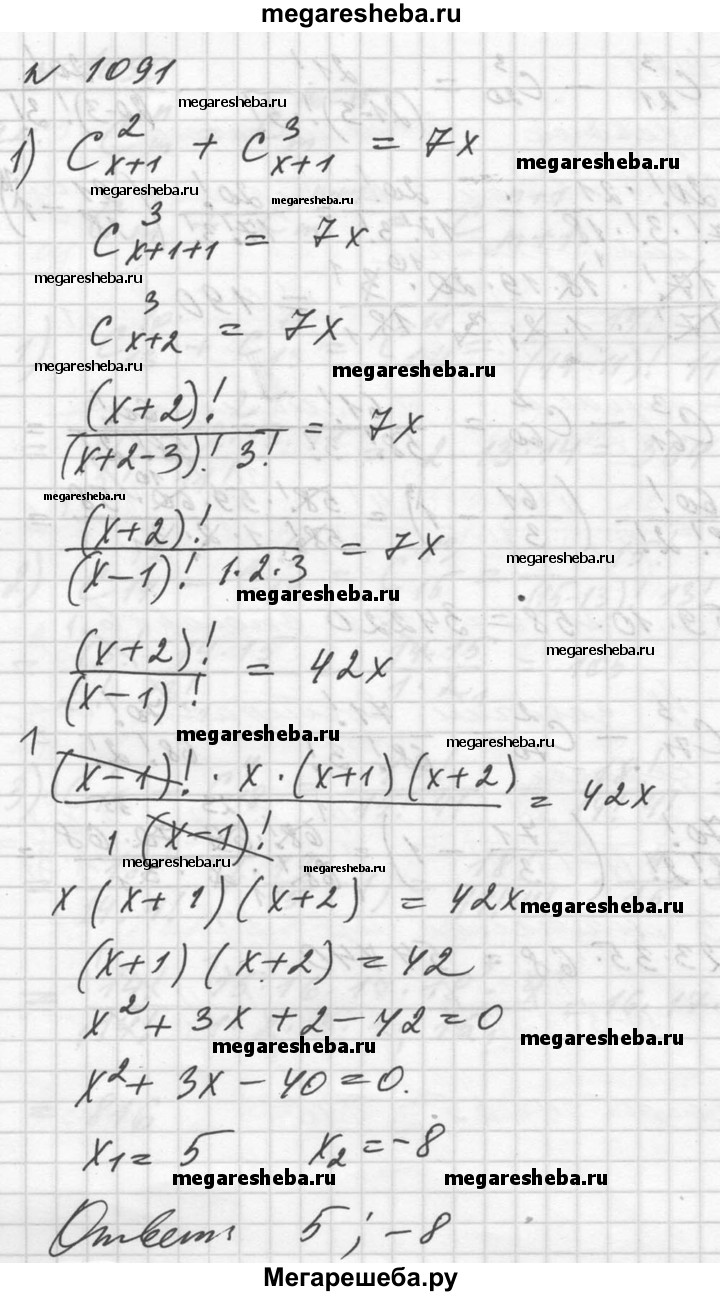 megaresheba.ru
№ 1091
megaresheba.ru
1) C²ₓ₊₁ + C³ₓ₊₁ = 7x
megaresheba.ru
megaresheba.ru megaresheba.ru
C³ₓ₊₁₊₁ = 7x
megaresheba.ru
C³ₓ₊₂ = 7x
megaresheba.ru megaresheba.ru
(x+2)! / (x+2-3)! 3! = 7x
megaresheba.ru
(x+2)! / (x-1)! 1·2·3 = 7x
megaresheba.ru
megaresheba.ru
(x+2)! / (x-1)! = 42x
megaresheba.ru
megaresheba.ru megaresheba.ru
1 (x-1)! · x · (x+1)(x+2) / 1 (x-1)! = 42x
megaresheba.ru megaresheba.ru
x(x+1)(x+2) = 42x
megaresheba.ru
(x+1)(x+2) = 42
x² + 3x + 2 - 42 = 0
megaresheba.ru megaresheba.ru
x² + 3x - 40 = 0.
x₁ = 5 x₂ = -8
megaresheba.ru megaresheba.ru
Ответ: 5; -8
Мегарешеба.ру